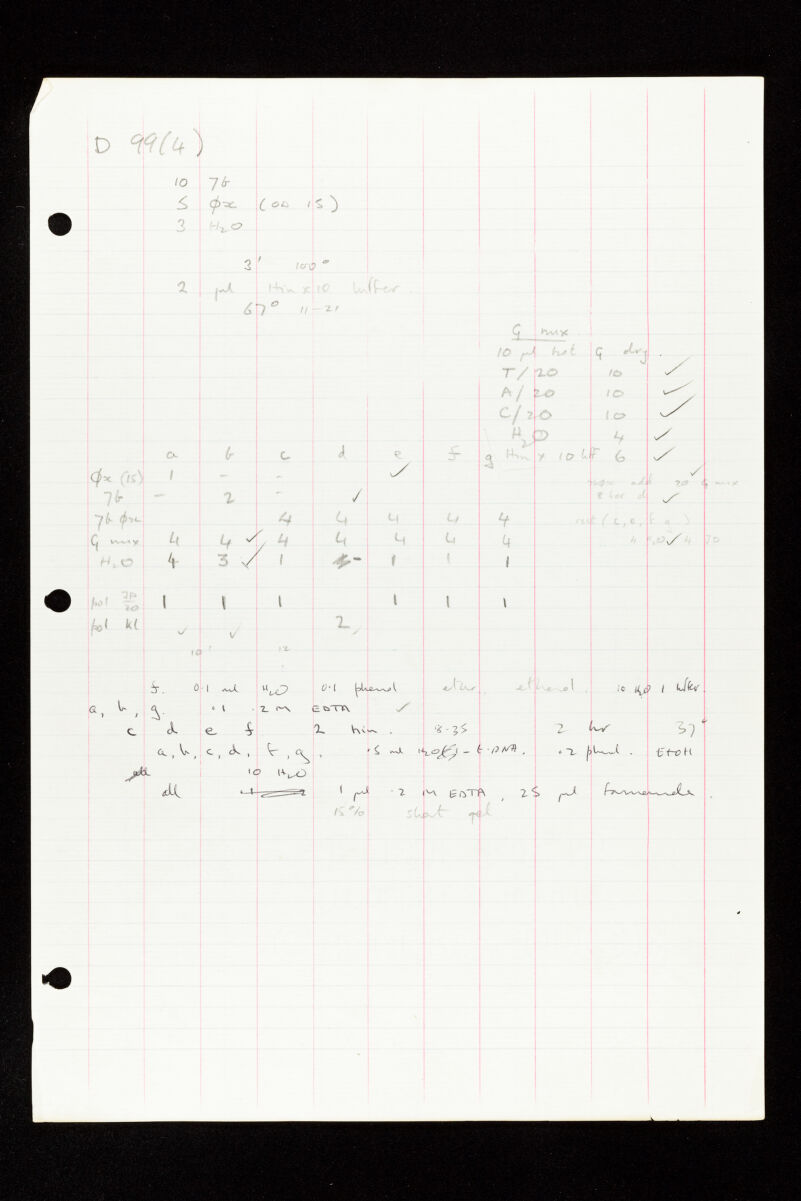 D 99(4)
10 7b
5 øx (OD 15)
3 H2O
3' 100°
2 µl Hin x 10 buffer.
67° 11-21
G mix
10 µl hot G dry.
T/20 10 ✓
A/20 10 ✓
C/20 10 ✓
H2O 4 ✓
Hin x 10 bff 6 ✓
a b c d e f g
øx (15) 1 - - ✓
7b - 2 - ✓
add 20 G mix
d ✓
7b øx 4 4 4 4 4
rest (c, e, f, g)
G mix 4 4 ✓ 4 4 4 4 4
H2O 4 3 ✓ 1 - 1 1 1
pol 1 1 1 1 1 1
pol Kl ✓ ✓ 2
10' 12
f. 0.1 ml H2O 0.1 phenol ether. ethanol. 10 H2O 1 bffer.
a, b, g. .1 .2 M EDTA ✓
c d e f 2 Hin. 8-35 2 hr 37°
a, b, c, d, f, g. .5 ml H2O - t-DNA. .2 phenol. EtOH
10 H2O
all 1 µl .2 M EDTA, 25 µl formamide.
15% short gel